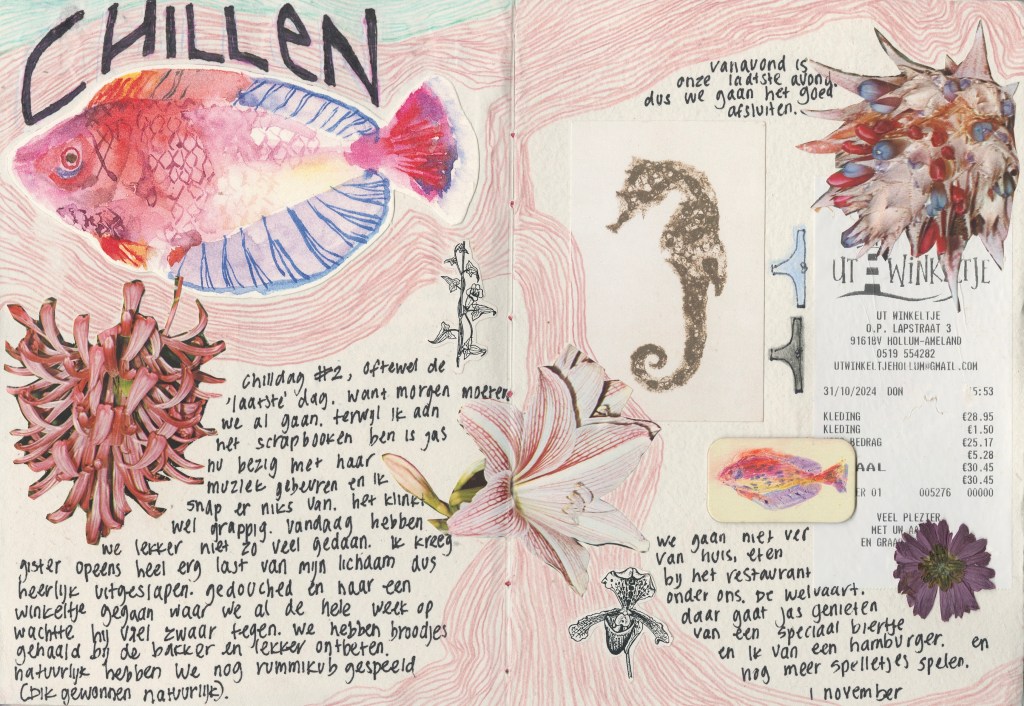 CHILLEN
chilldag #2, oftewel de
'laatste' dag. want morgen moeten
we al gaan. terwyl ik aan
het scrapbooken ben is jas
nu bezig met haar
muziek gebeuren en ik
snap er niks van. het klinkt
wel grappig. vandaag hebben
we lekker niet zo veel gedaan. ik kreeg
gister opeens heel erg last van mijn lichaam dus
heerlijk uitgeslapen. gedouched en naar een
winkeltje gegaan waar we al de hele week op
wachtte hij viel zwaar tegen. we hebben broodjes
gehaald bij de bakker en lekker ontbeten.
natuurlijk hebben we nog rummikub gespeeld
(bik gewonnen natuurlijk).
vanavond is
onze laatste avond
dus we gaan het goed
afsluiten.
UT WINKELTJE
UT WINKELTJE
O.P. LAPSTRAAT 3
91618V HOLLUM-AMELAND
0519 554282
UTWINKELTJEHOLLUM@GMAIL.COM
31/10/2024 DON 5:53
KLEDING €28.95
KLEDING €1.50
BEDRAG €25.17
€5.28
AAL €30.45
€30.45
ER 01 005276 00000
VEEL PLEZIER
MET UW AA
EN GRAA
we gaan niet ver
van huis, eten
bij het restaurant
onder ons. De welvaart.
daar gaat jas genieten
van een speciaal biertje
en ik van een hamburger. en
nog meer spelletjes spelen.
1 november